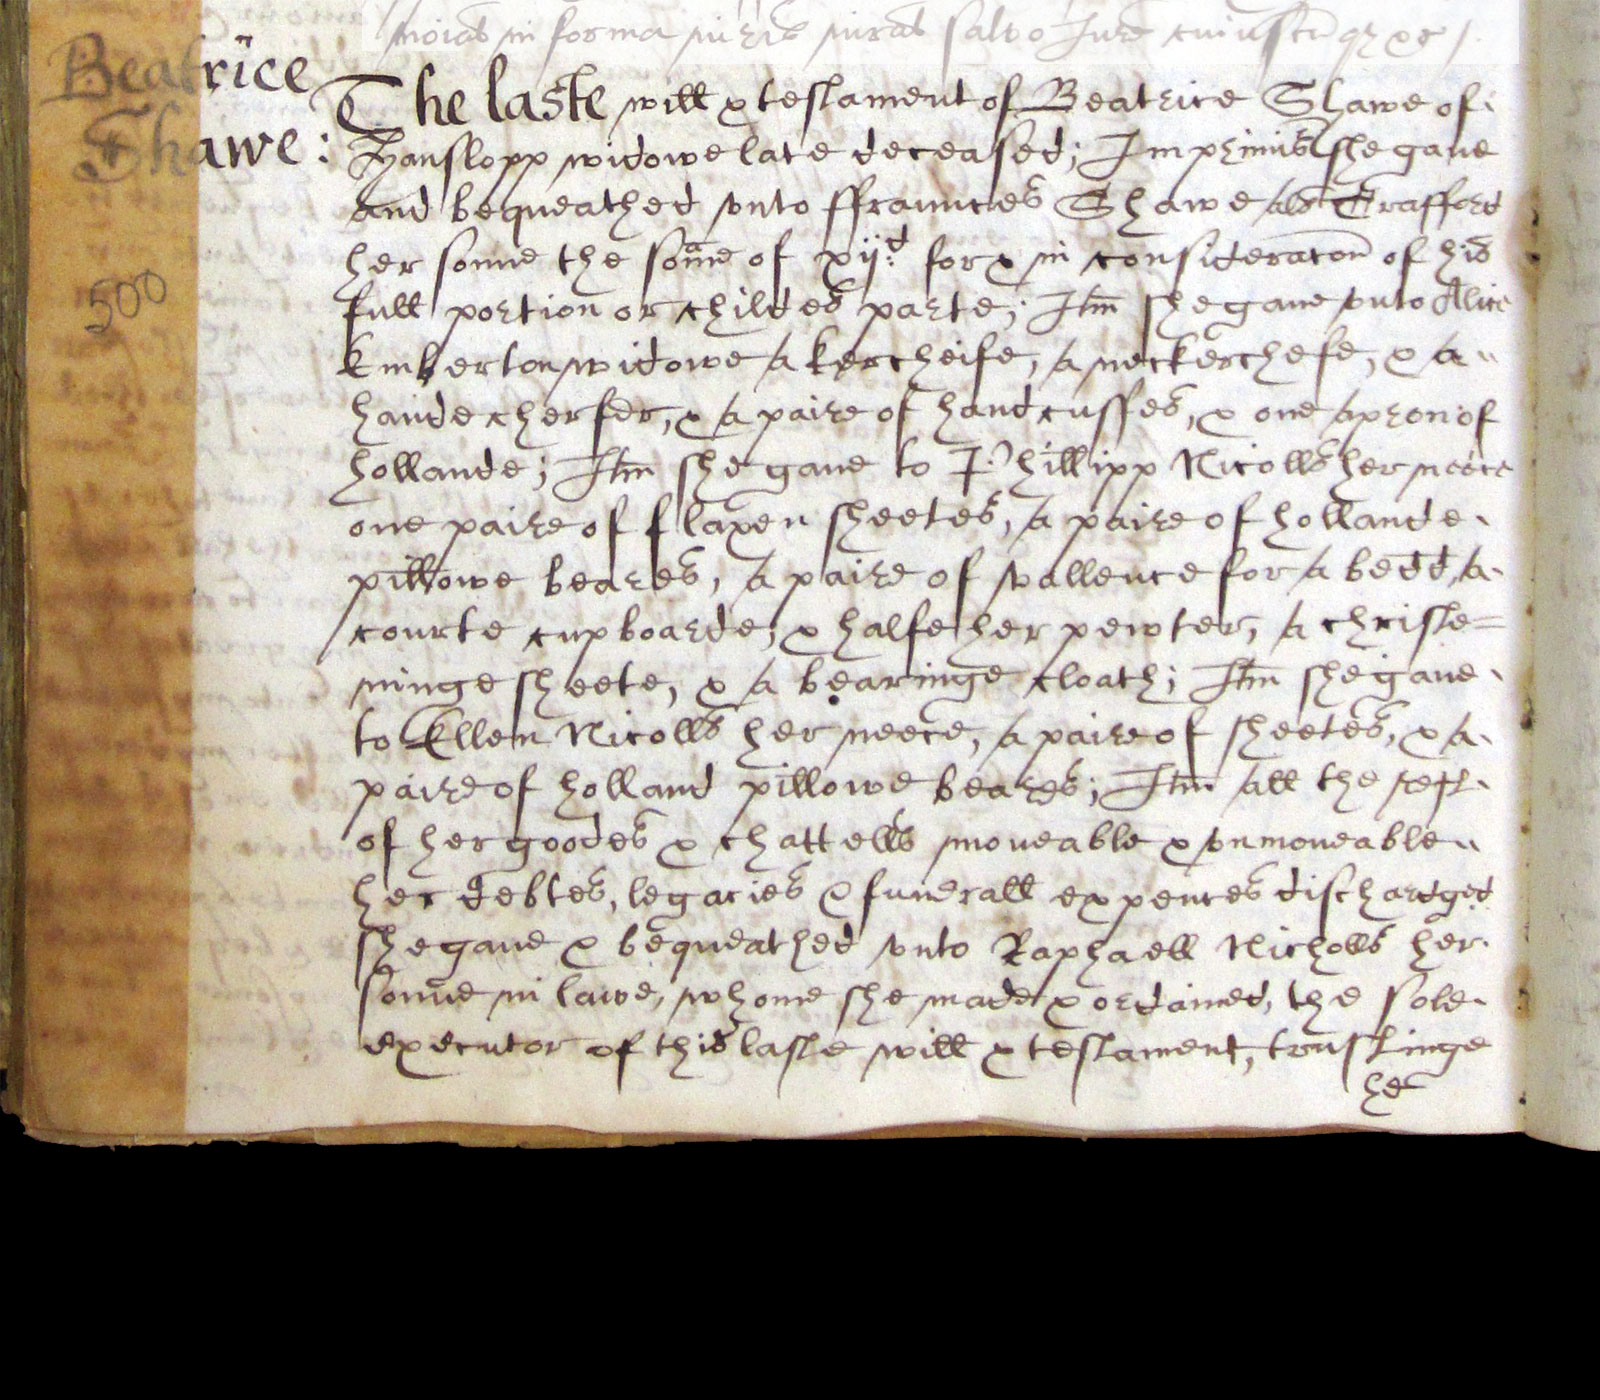 in forma iuris iurat salvo Iure cuiuscu[n]q[ue] &c
Beatrice
Shawe :
500
The laste will & testament of Beatrice Shawe of
Hanslopp widowe late deceased; Imprimis she gave
and bequeathed vnto ffraunces Shawe als Trafford
her sonne the some of xij.d for & in consideracon of his
full portion or childes parte; Itm she gaue vnto Alice
Emberton widowe a kercheife, a neckerchefe, & a
handecherfer, & a paire of handcuffes, & one apron of
hollande; Itm she gaue to Phillipp Nicolls her neece
one paire of flaxen sheetes, a paire of hollande
pillowe beares, a paire of vallence for a bedd, a
courte cupboarde, & halfe her pewter, a christe=
ninge sheete, & a bearinge cloath; Itm she gaue
to Ellen Nicolls her neece, a paire of sheetes, & a
paire of holland pillowe beares; Itm all the rest
of her goodes & chattells moueable & vnmoueable
her debtes, legacies & funerall expences dischardged
she gaue & bequeathed vnto Raphaell Nicholls her
sonne in lawe, whome she made & ordained, the sole
executor of this laste will & testament, trustinge
he